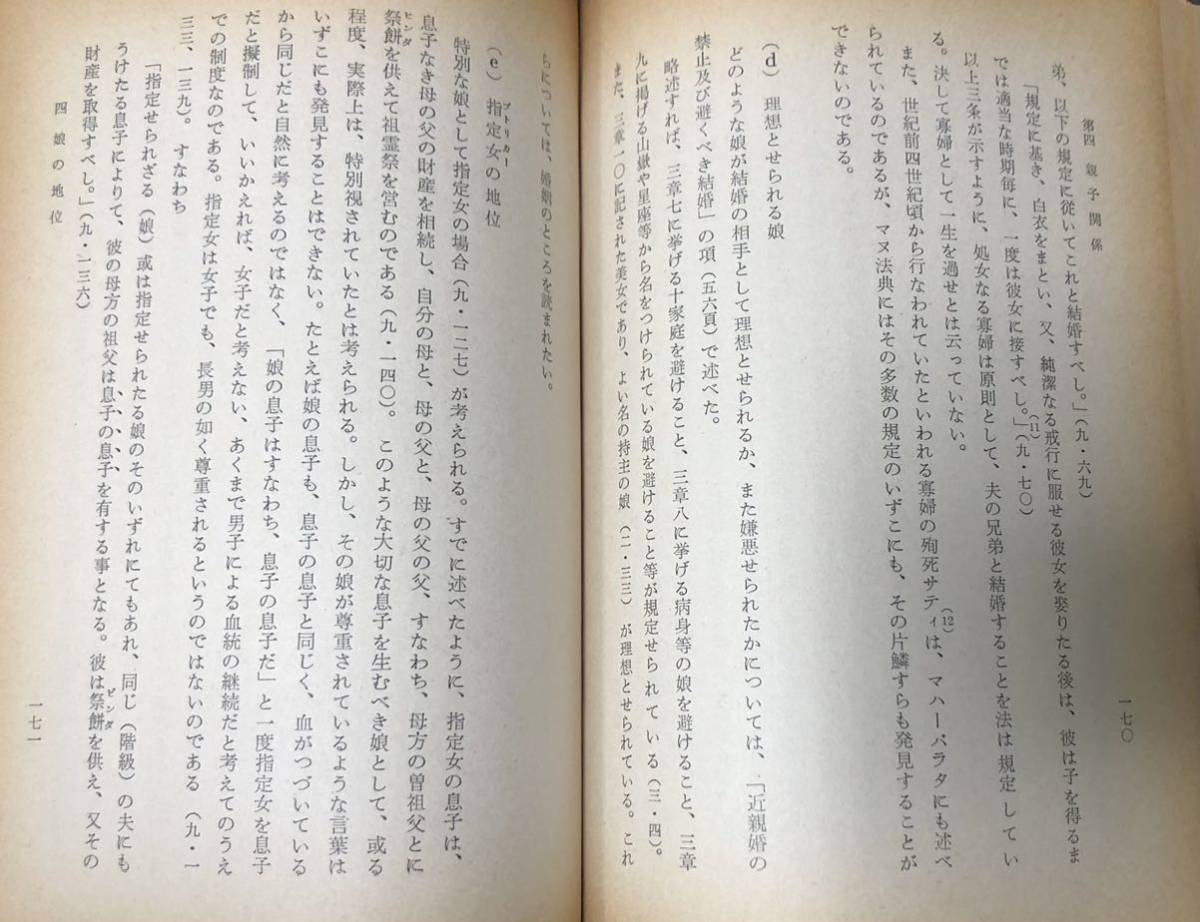 第四 親子関係
一七〇
弟、以下の規定に従いてこれと結婚すべし。」(九・六九)
「規定に基き、白衣をまとい、又、純潔なる戒行に服せる彼女を娶りたる後は、彼は子を得るま
では適当な時期毎に、一度は彼女に接すべし。」(11)(九・七〇)
以上三条が示すように、処女なる寡婦は原則として、夫の兄弟と結婚することを法は規定してい
る。決して寡婦として一生を過せとは云っていない。
また、世紀前四世紀頃から行なわれていたといわれる寡婦の殉死サティ(12)は、マハーバラタにも述べ
られているのであるが、マヌ法典にはその多数の規定のいずこにも、その片鱗すらも発見することが
できないのである。
(d) 理想とせられる娘
どのような娘が結婚の相手として理想とせられるか、また嫌悪せられたかについては、「近親婚の
禁止及び避くべき結婚」の項(五六頁)で述べた。
略述すれば、三章七に挙げる十家庭を避けること、三章八に挙げる病身等の娘を避けること、三章
九に掲げる山嶽や星座等から名をつけられている娘を避けること等が規定せられている(三・四)。
また、三章一〇に記された美女であり、よい名の持主の娘(二・三三)が理想とせられている。これ
らについては、婚姻のところを読まれたい。
(e) 指定女プトリカーの地位
特別な娘として指定女の場合(九・一二七)が考えられる。すでに述べたように、指定女の息子は、
息子なき母の父の財産を相続し、自分の母と、母の父と、母の父の父、すなわち、母方の曽祖父とに
祭餅ピンダを供えて祖霊祭を営むのである(九・一四〇)。このような大切な息子を生むべき娘として、或る
程度、実際上は、特別視されていたとは考えられる。しかし、その娘が尊重されているような言葉は
いずこにも発見することはできない。たとえば娘の息子も、息子の息子と同じく、血がつづいている
から同じだと自然に考えるのではなく、「娘の息子はすなわち、息子の息子だ」と一度指定女を息子
だと擬制して、いいかえれば、女子だと考えない、あくまで男子による血統の継続だと考えてのうえ
での制度なのである。指定女は女子でも、長男の如く尊重されるというのではないのである(九・一
三三、一三九)。すなわち
「指定せられざる(娘)或は指定せられたる娘のそのいずれにてもあれ、同じ(階級)の夫にも
うけたる息子によりて、彼の母方の祖父は息子の息子を有する事となる。彼は祭餅ピンダを供え、又その
財産を取得すべし。」(九・一三六)
四 娘の地位
一七一